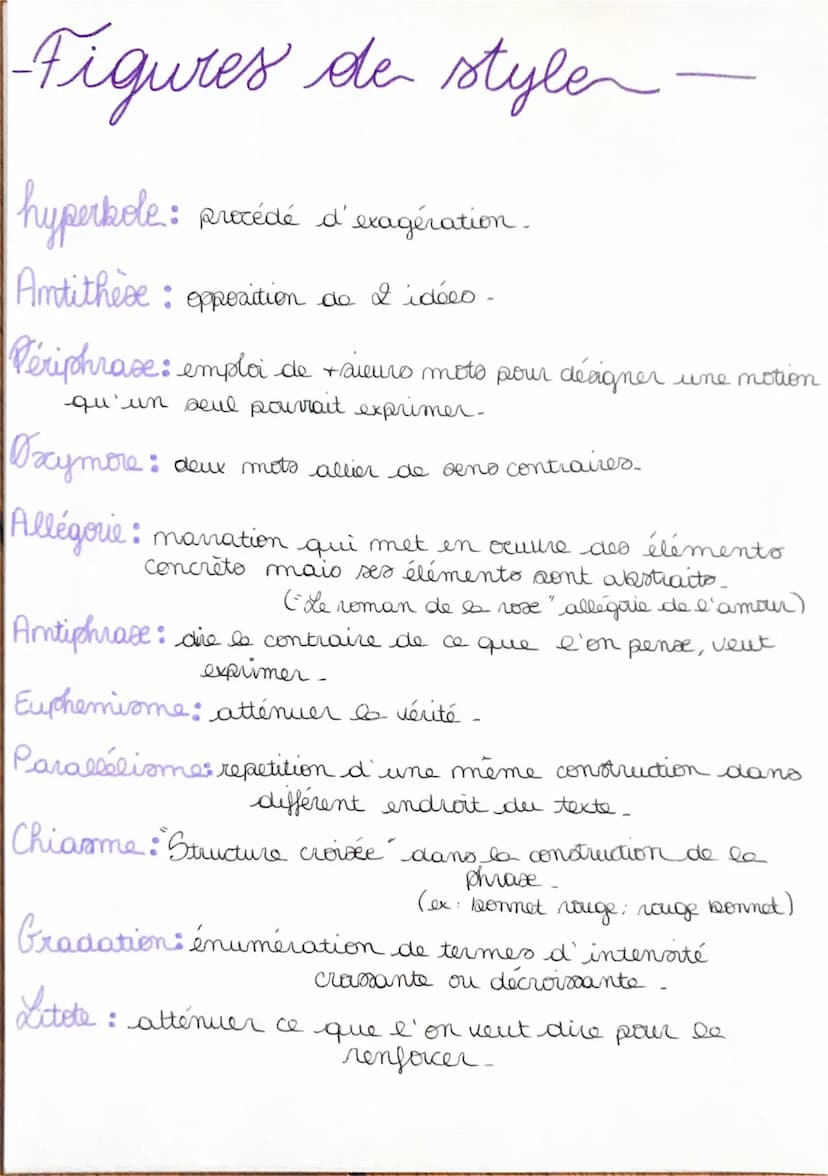 -Figures de style—
hyperbole : procédé d'exagération.
Antithèse : opposition de 2 idées.
Périphrase : emploi de +sieurs mots pour désigner une notion
qu'un seul pourrait exprimer.
Oxymore : deux mots allier de sens contraires.
Allégorie : narration qui met en œuvre des éléments
concrèts mais ses éléments sont abstraits.
("Le roman de la rose" allégorie de l'amour)
Antiphrase : dire le contraire de ce que l'on pense, veut
exprimer.
Euphemisme : atténuer la vérité.
Parallélisme : repetition d'une même construction dans
différent endroit du texte.
Chiasme : "Structure croisée" dans la construction de la
phrase.
(ex : bonnet rouge ; rouge bonnet)
Gradation : énumération de termes d'intensité
croissante ou décroissante.
Litote : atténuer ce que l'on veut dire pour le
renforcer.